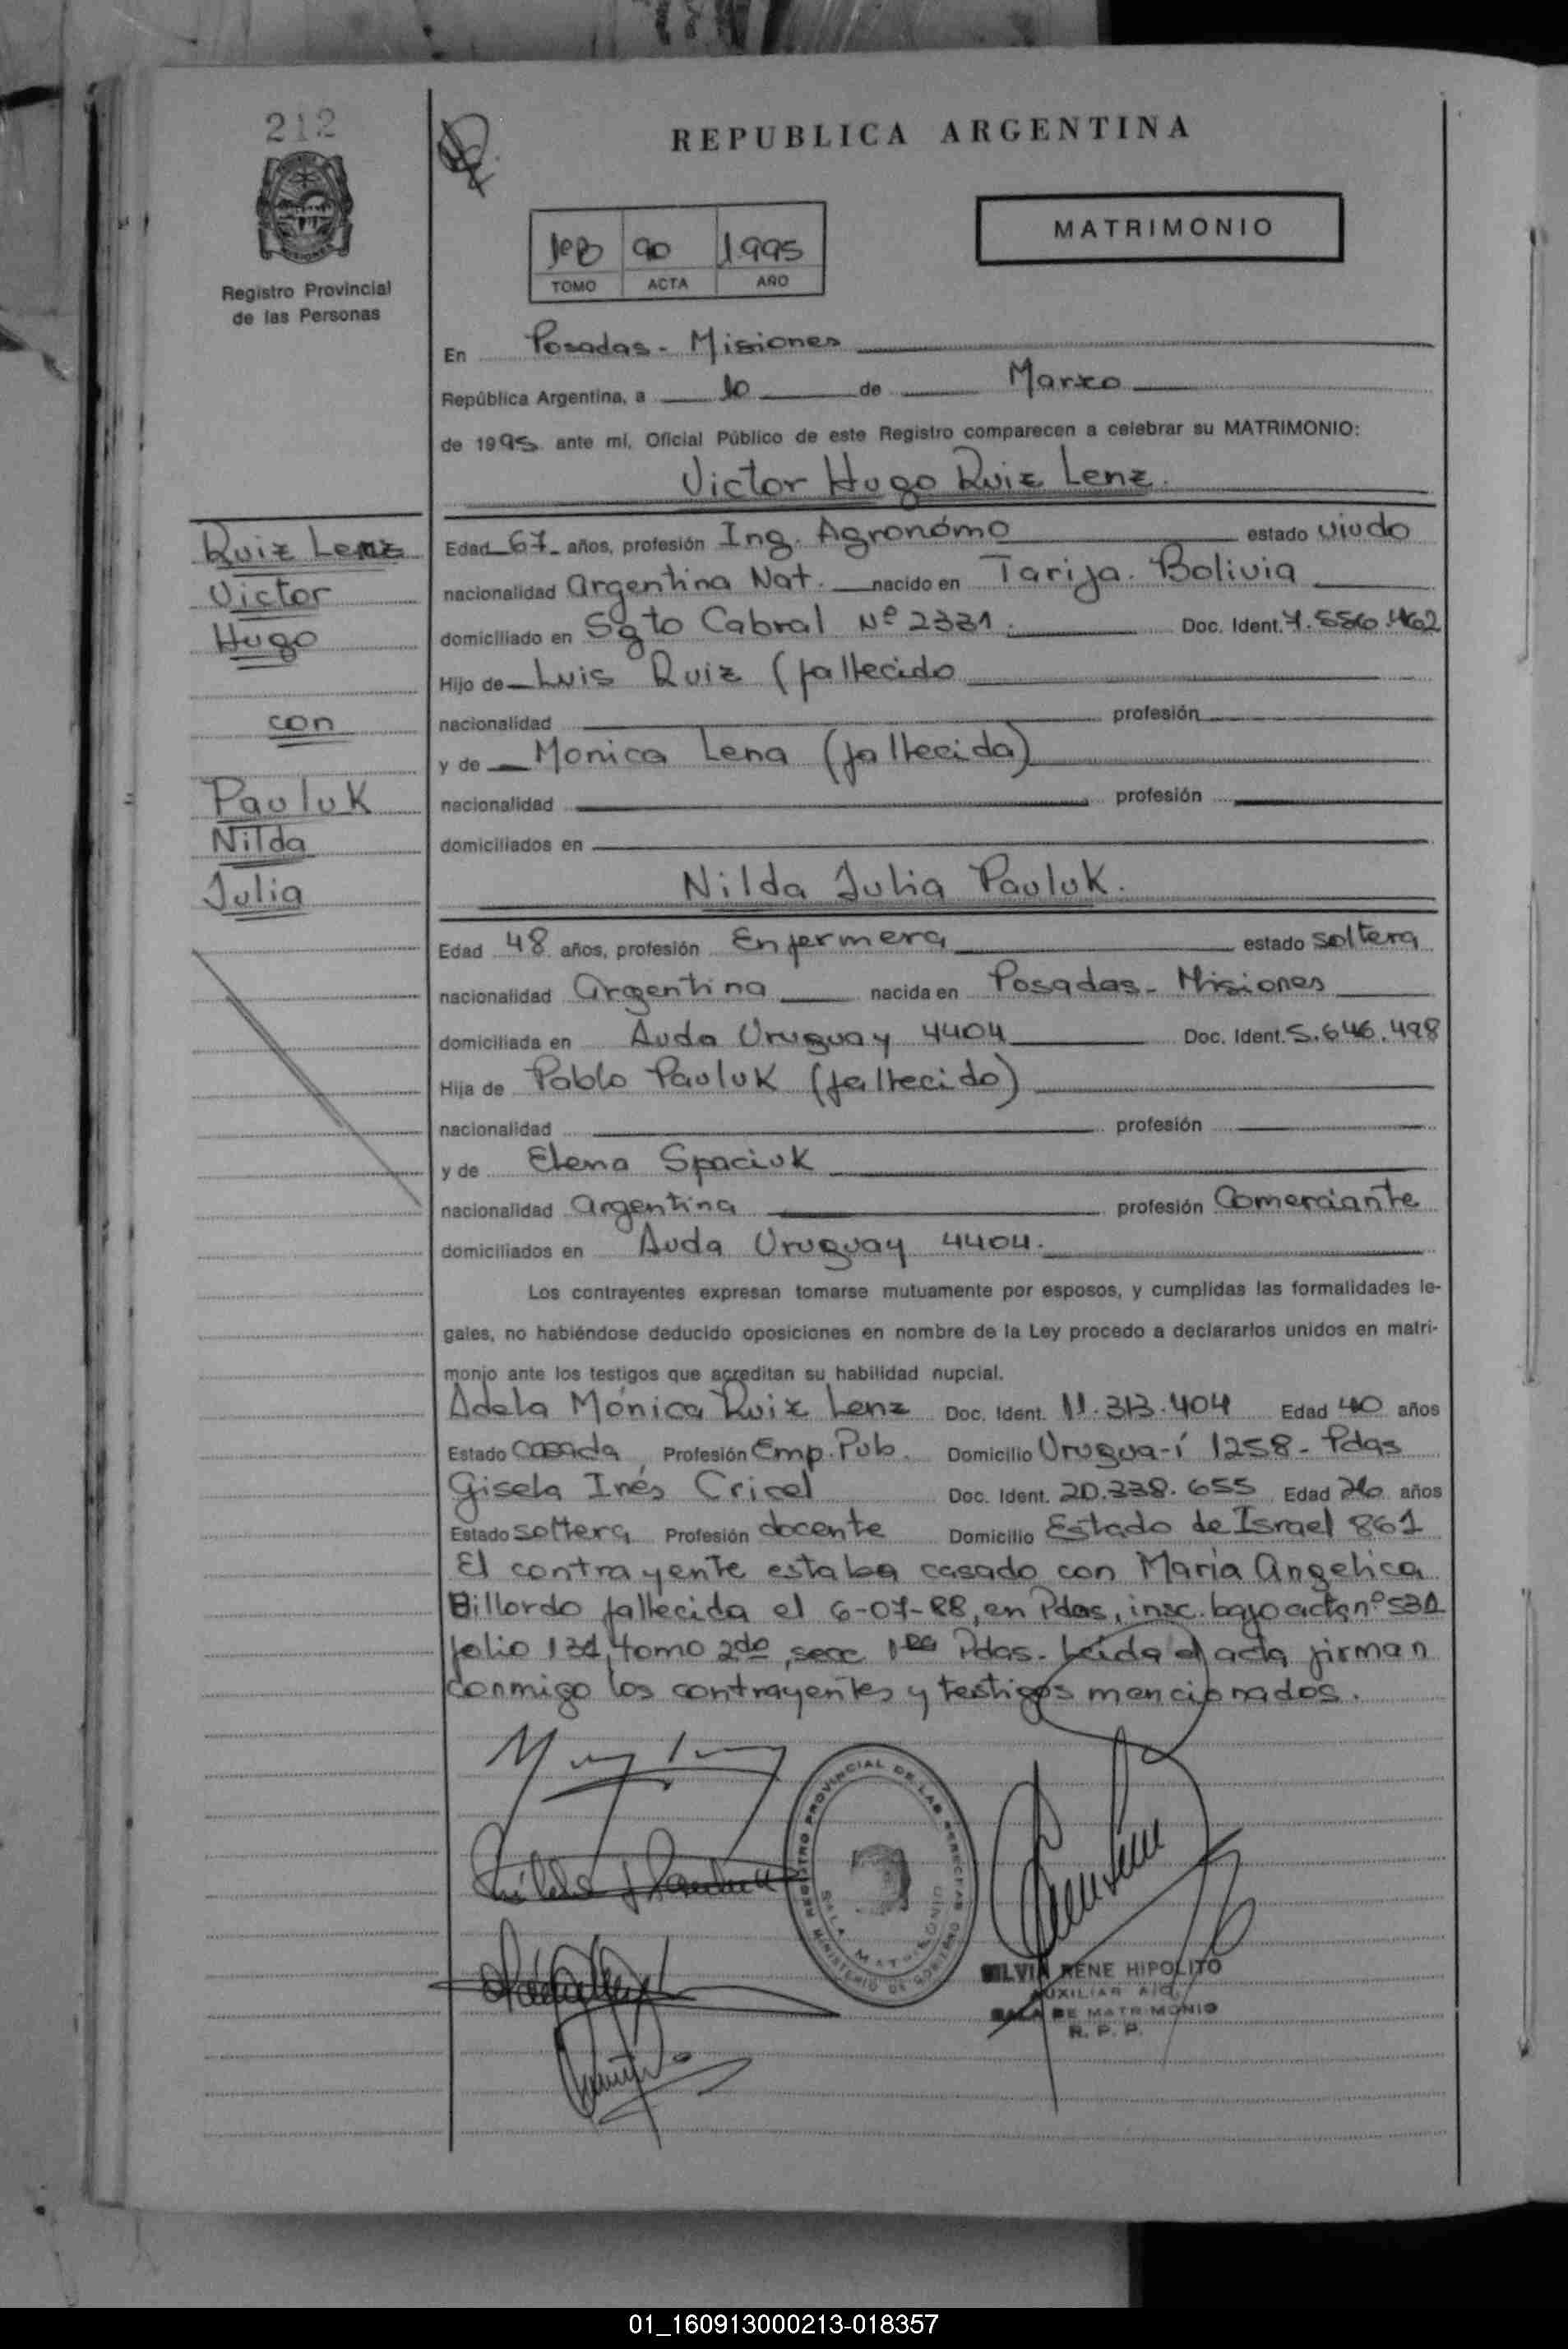 212
REPUBLICA ARGENTINA
MATRIMONIO
90 1995
TOMO ACTA AÑO
Registro Provincial
de las Personas
En Posadas - Misiones
República Argentina, a 10 de Marzo
de 1995 ante mí, Oficial Público de este Registro comparecen a celebrar su MATRIMONIO:
Victor Hugo Ruiz Lenz.
Ruiz Lenz
Victor
Hugo
con
Pauluk
Nilda
Julia
Edad 67 años, profesión Ing. Agronómo estado viudo
nacionalidad Argentina Nat. nacido en Tarija. Bolivia
domiciliado en Sgto Cabral Nº 2331. Doc. Ident. 7.556.462
Hijo de Luis Ruiz (fallecido
nacionalidad profesión
y de Monica Lena (fallecida)
nacionalidad profesión
domiciliados en
Nilda Julia Pauluk.
Edad 48 años, profesión Enfermera estado soltera
nacionalidad Argentina nacida en Posadas - Misiones
domiciliada en Avda Uruguay 4404 Doc. Ident. 5.646.498
Hija de Pablo Pauluk (fallecido)
nacionalidad profesión
y de Elena Spaciuk
nacionalidad Argentina profesión Comerciante
domiciliados en Avda Uruguay 4404.
Los contrayentes expresan tomarse mutuamente por esposos, y cumplidas las formalidades le-
gales, no habiéndose deducido oposiciones en nombre de la Ley procedo a declararlos unidos en matri-
monio ante los testigos que acreditan su habilidad nupcial.
Adela Mónica Ruiz Lenz Doc. Ident. 11.313.404 Edad 40 años
Estado casada Profesión Emp. Pub. Domicilio Urugua-í 1258 - Pdas
Gisela Inés Doc. Ident. 20.338.655 Edad 26 años
Estado soltera Profesión docente Domicilio Estado de Israel 861
El contrayente estaba casado con María Angelica
Billordo fallecida el 6-07-88, en Pdas, insc. bajo acta nº 531
folio 131, tomo 2do, secc 1ra Pdas. Leída el acta firman
conmigo los contrayentes y testigos mencionados.
REGISTRO PROVINCIAL DE LAS PERSONAS
SALA MATRIMONIO
MINISTERIO DE GOBIERNO
SILVIA RENE HIPOLITO
AUXILIAR
SALA DE MATRIMONIO
R. P. P.
01_160913000213-018357